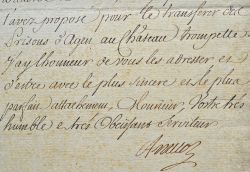 l'avez proposé pour le transferer des
Prisons d'Agen au Château trompette
J'ay Lhonneur de vous les adresser et
D'etre avec le plus sincere et le plus
parfait attachement, Monsieur, Votre très
humble et très Obeissant Serviteur